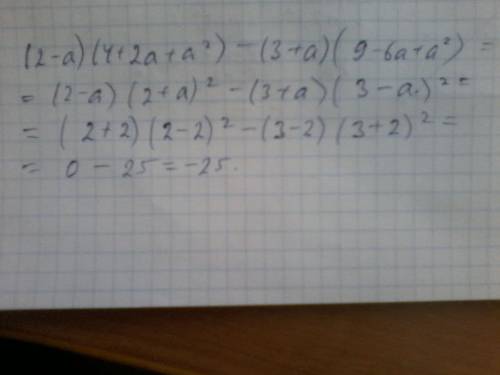 (2-a)(4+2a+a²)-(3+a)(9-6a+a²)=
=(2-a)(2+a)²-(3+a)(3-a)²=
=(2+2)(2-2)²-(3-2)(3+2)²=
= 0-25=-25.